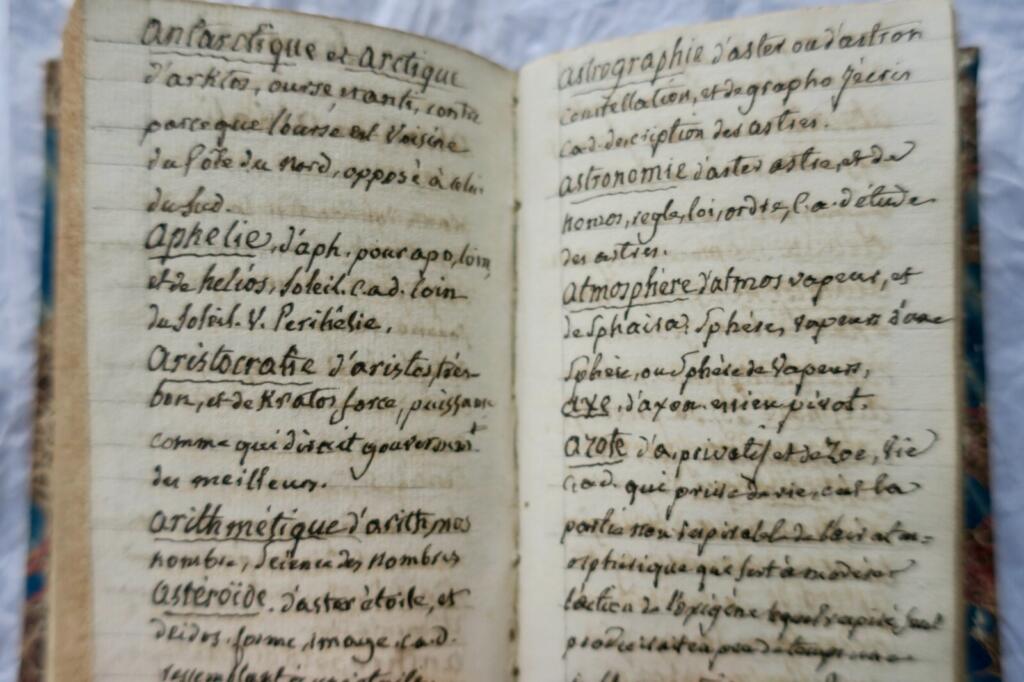 antarctique et arctique
d'arktos, ourse, et anti, contre
parceque l'ourse est voisine
du Pôle du nord, opposé à celui
du sud.
aphelie, d'aph. pour apo, loin,
et de helios, soleil. c.a.d. loin
du soleil. V. Perihélie,
aristocratie d'aristos, très-
bon, et de Kratos force, puissance
comme qui diroit gouvernmt.
des meilleurs.
arithmétique d'arithmos
nombre, science des nombres
astéroïde. d'aster étoile, et
deidos. forme, image. c.a.d.
ressemblant à
astrographie d'aster ou d'astron
constellation, et de grapho j'écris
c.a.d. description des astres.
astronomie d'aster astre, et de
nomos, regle, loi, ordre, c.a.d étude
des astres.
atmosphère d'atmos vapeur, et
de sphaira, sphère, vapeurs d'une
sphère, ou sphère de vapeurs,
axe, d'axon. essieu pivot.
azote d'a, privatif et de Zoe, vie
c.a.d. qui prive de vie, c'est la
partie non respirable de l'air atm-
osphérique qui sert à modérer
l'action de l'oxigène
produiroit en peu de temps une